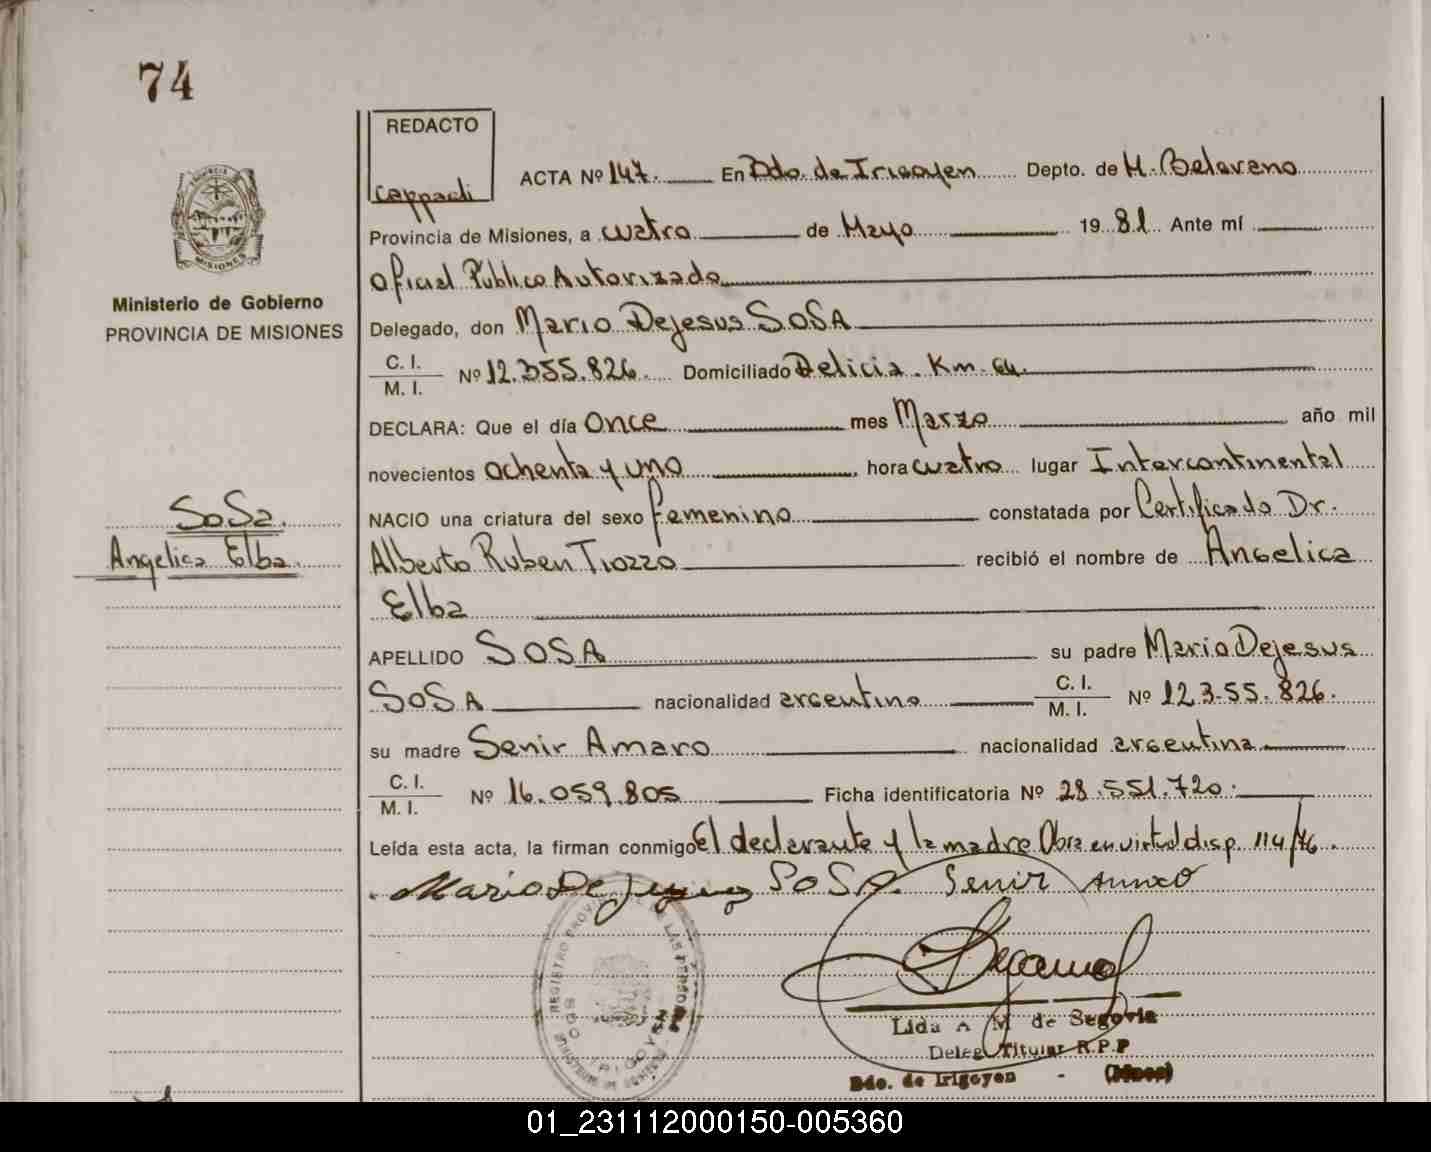 74
REDACTO
Cappadi
ACTA Nº 147. En Bdo. de Irigoyen Depto. de M. Belgrano
Provincia de Misiones, a cuatro de Mayo 1981 Ante mí
Oficial Público Autorizado
Delegado, don Mario Dejesus SOSA
C. I.
M. I.
Nº 12.355.826. Domiciliado Delicia. Km. 64.
DECLARA: Que el día Once mes Marzo año mil
novecientos ochenta y uno, hora cuatro lugar Intercontinental
NACIO una criatura del sexo femenino constatada por Certificado Dr.
Alberto Ruben Tiozzo recibió el nombre de Angelica
Elba
APELLIDO SOSA su padre Mario Dejesus
SOSA nacionalidad argentino C. I.
M. I. Nº 12.355.826.
su madre Senir Amaro nacionalidad argentina
C. I.
M. I.
Nº 16.059.805 Ficha identificatoria Nº 28.551.720.
Leída esta acta, la firman conmigo El declarante y la madre Obra en virtud disp. 114/76.
Mario De Jesus SOSA. Senir Amaro
Lida A M de Segovia
Deleg Titular R.P.P
Bdo. de Irigoyen - (Mnes)
Ministerio de Gobierno
PROVINCIA DE MISIONES
Sosa.
Angelica Elba.
REGISTRO PROVINCIAL DE LAS PERSONAS
BDO. IRIGOYEN
MISIONES
01_231112000150-005360